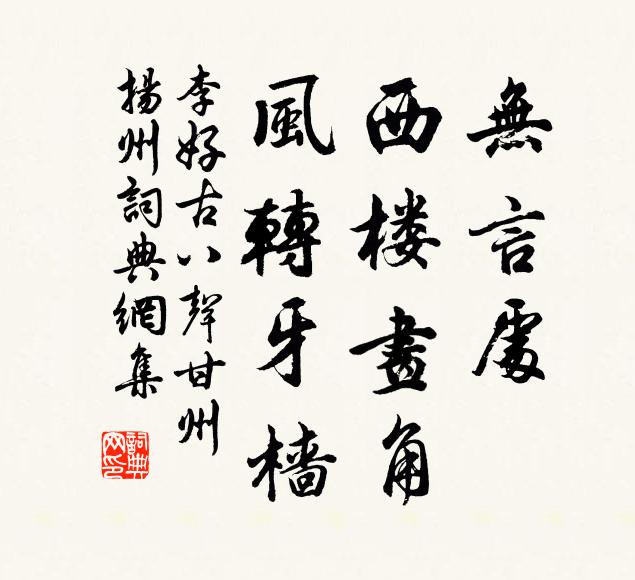 無言處
西楼畫角
風轉牙檣
李好古八聲甘州
揚州詞典網集
詞典
网印